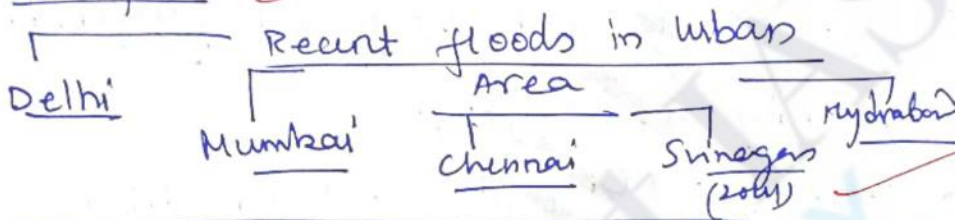 Recent floods in Urban
Area
Delhi
Mumbai
Chennai
Srinagar
Hydrabad
(2014)
IAS